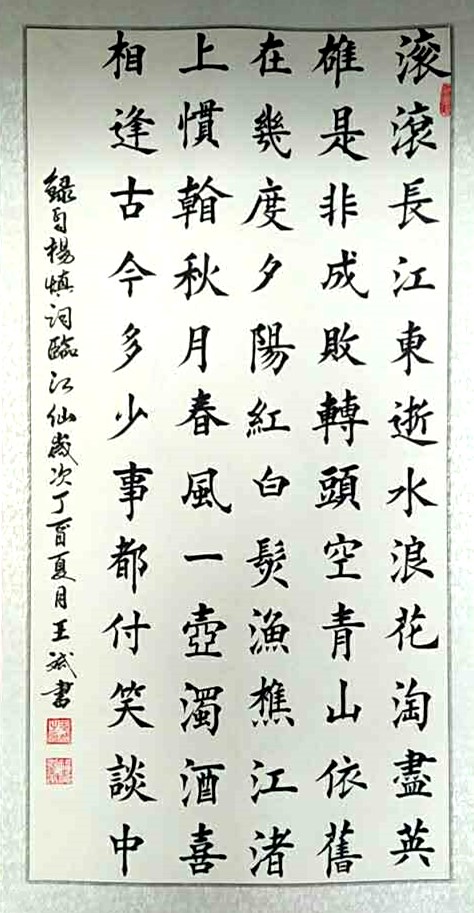 滚滾長江東逝水浪花淘盡英
雄是非成敗轉頭空青山依舊
在幾度夕陽紅白髮漁樵江渚
上慣看秋月春風一壺濁酒喜
相逢古今多少事都付笑談中
錄自楊慎詞臨江仙歲次丁酉夏月王斌書